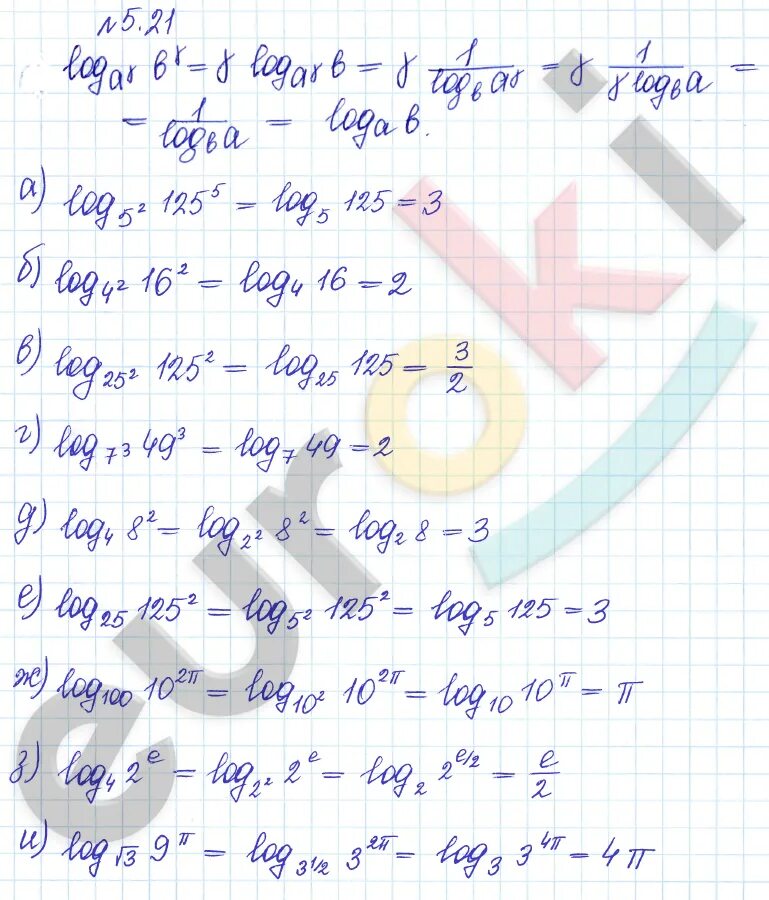 №5.21
log_{a^γ} b^γ = γ log_{a^γ} b = γ 1/(log_b a^γ) = γ 1/(γ log_b a) =
= 1/(log_b a) = log_a b.
а) log_{5^2} 125^5 = log_5 125 = 3
б) log_{4^2} 16^2 = log_4 16 = 2
в) log_{25^2} 125^2 = log_{25} 125 = 3/2
г) log_{7^3} 49^3 = log_7 49 = 2
д) log_4 8^2 = log_{2^2} 8^2 = log_2 8 = 3
е) log_{25} 125^2 = log_{5^2} 125^2 = log_5 125 = 3
ж) log_{100} 10^{2π} = log_{10^2} 10^{2π} = log_{10} 10^π = π
з) log_4 2^e = log_{2^2} 2^e = log_2 2^{e/2} = e/2
и) log_{√3} 9^π = log_{3^{1/2}} 3^{2π} = log_3 3^{4π} = 4π
euroki